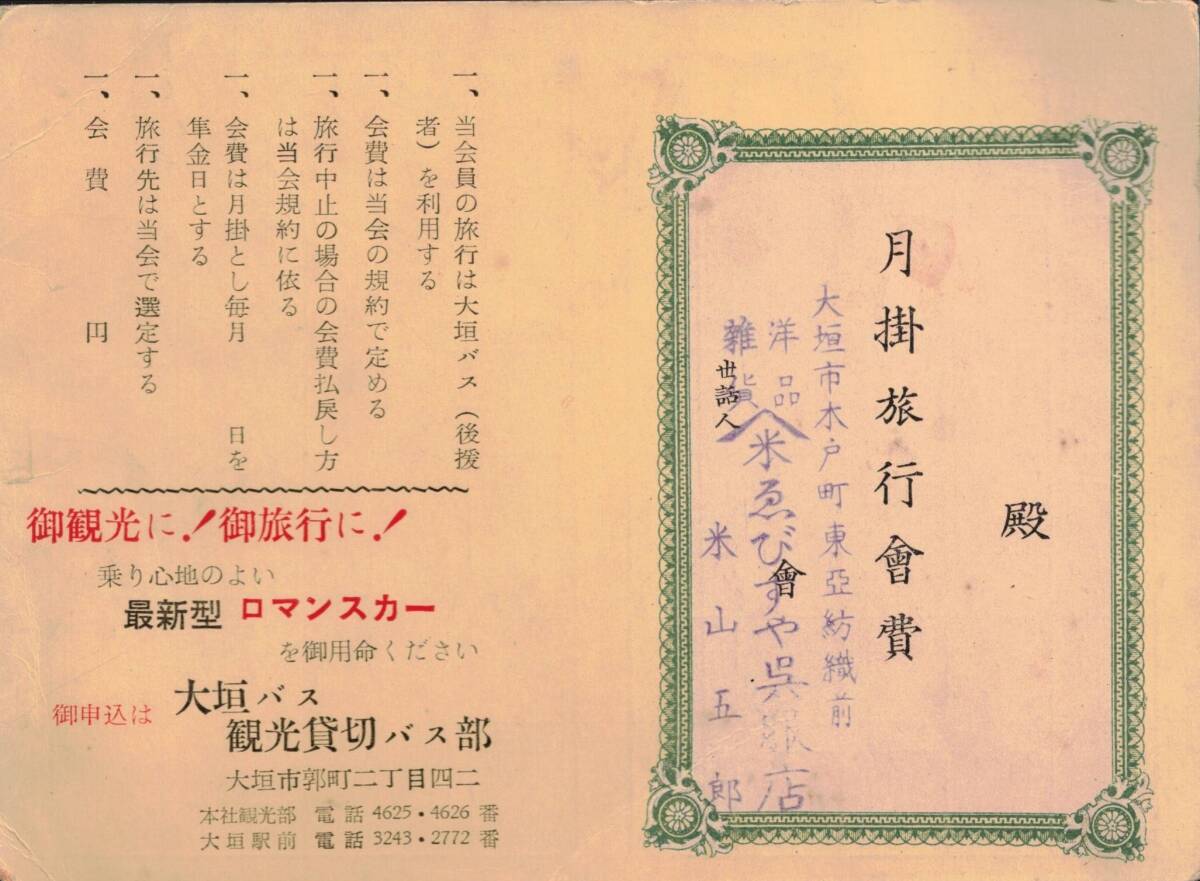 殿
月掛旅行會費
大垣市木戸町東亞紡織前
洋品
雑貨
米ゑびすや呉服店
會
世話人
米山五郎
一、当会員の旅行は大垣バス(後援
者)を利用する
一、会費は当会の規約で定める
一、旅行中止の場合の会費払戻し方
は当会規約に依る
一、会費は月掛とし毎月 日を
隼金日とする
一、旅行先は当会で選定する
一、会費 円
御観光に!御旅行に!
乗り心地のよい
最新型 ロマンスカー
を御用命ください
御申込は
大垣バス
観光貸切バス部
大垣市郭町二丁目四二
本社観光部 電話 4625・4626 番
大垣駅前 電話 3243・2772 番